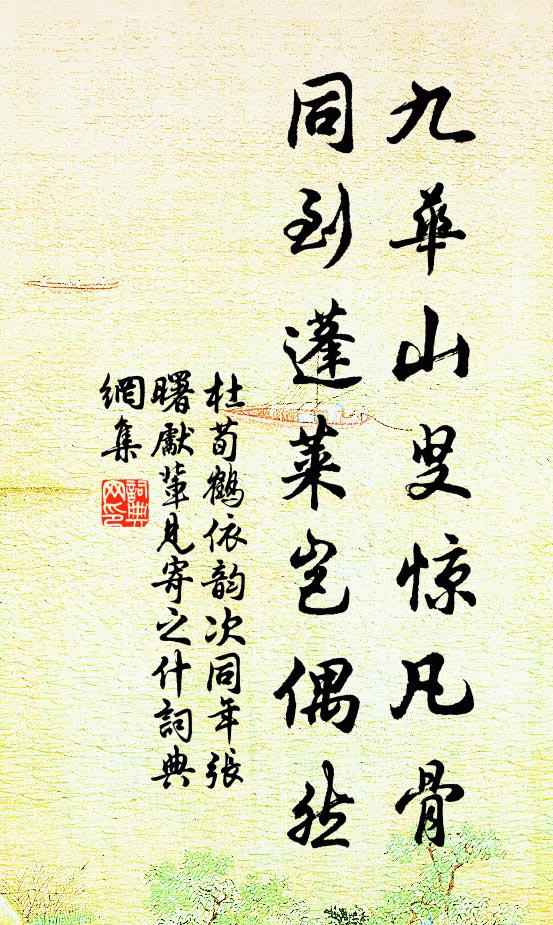 九華山叟惊凡骨
同到蓬萊豈偶然
杜荀鶴依韵次同年張
曙獻輩見寄之什詞典
網集
詞典
网印